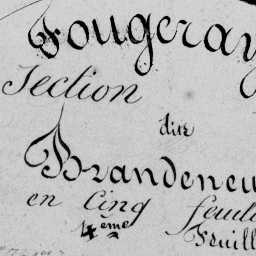 Fougeray
Section
dite
Brandeneu
en Cinq feuil
4ème Feuill